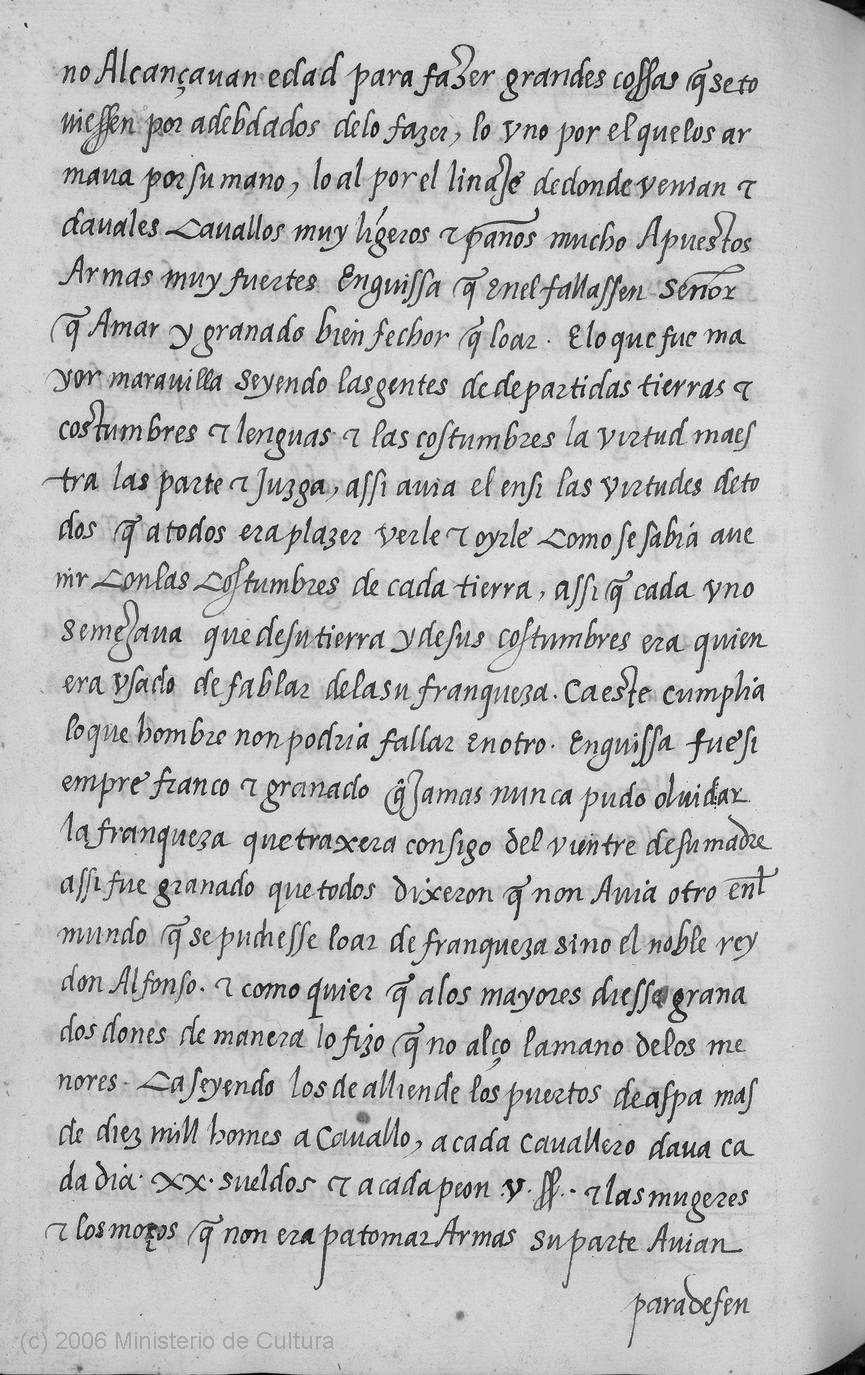 no Alcançauan edad para fazer grandes cossas q̃ se to
uiessen por adebdados delo fazer, lo vno por el quelos ar
maua por su mano, lo al por el linaje dedonde venian τ
dauales Cauallos muy ligeros τ pãnos mucho Apuestos
Armas muy fuertes Enguissa q̃ Enel fallassen Señor
q̃ Amar y granado bien fechor q̃ loar. E lo que fue ma
yor marauilla Seyendo lasgentes de departidas tierras τ
costumbres τ lenguas τ las costumbres la virtud maes
tra las parte τ Juzga, assi auia el ensi las virtudes deto
dos q̃ atodos era plazer verle τ oyrle Como se sabia aue
nir Conlas Costumbres de cada tierra, assi q̃ cada vno
Semejaua que desu tierra y desus costumbres era quien
era vsado de fablar delasu franqueza. Ca este cumplia
loque hombre non podria fallar Enotro. Enguissa fue si
empre franco τ granado q̃ Jamas nunca pudo oluidar
la franqueza que traxera consigo del vientre desu madre
assi fue granado que todos dixeron q̃ non Auia otro enl
mundo q̃ se pudiesse loar de franqueza sino el noble rey
don Alfonso. τ como quier q̃ alos mayores diesse grana
dos dones de manera lo fizo q̃ no alço lamano delos me
nores. Ca seyendo los de alliende los puertos de aspa mas
de diez mill homes a Cauallo, a cada cauallero daua ca
da dia. xx. sueldos τ a cada peon .v. ss. τ las mugeres
τ los moços q̃ non era pa tomar Armas su parte Auian
paradefen
(c) 2006 Ministerio de Cultura